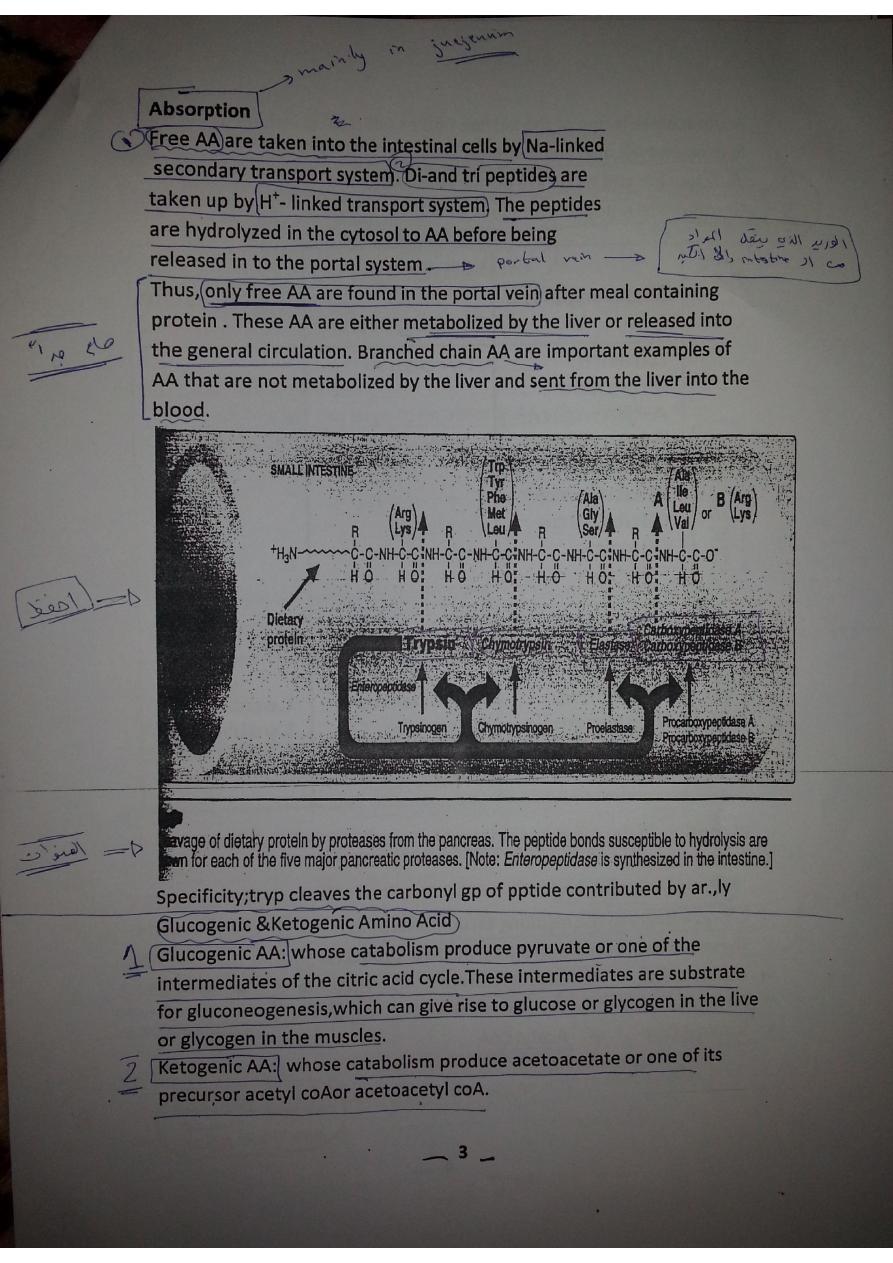 mainly in juejenum
Absorption
1 Free AA are taken into the intestinal cells by Na-linked
secondary transport system. 2 Di-and tri peptides are
taken up by H+- linked transport system. The peptides
are hydrolyzed in the cytosol to AA before being
released in to the portal system. portal vein
الوريد الذي ينقل المواد
من ال intestine الى الكبد
Thus, only free AA are found in the portal vein after meal containing
protein . These AA are either metabolized by the liver or released into
the general circulation. Branched chain AA are important examples of
AA that are not metabolized by the liver and sent from the liver into the
blood.
هام جداً
SMALL INTESTINE
Arg
Lys
Trp
Tyr
Phe
Met
Leu
Ala
Gly
Ser
A
Ala
Ile
Leu
Val
or
B
Arg
Lys
R R R R
+H3N C-C-NH-C-C NH-C-C-NH-C-C NH-C-C-NH-C-C NH-C-C NH-C-C-O-
H O H O H O H O H O H O H O H O
احفظ
Dietary
protein
Trypsin Chymotrypsin Elastase Carboxypeptidase A
Carboxypeptidase B
Enteropeptidase
Trypsinogen Chymotrypsinogen Proelastase Procarboxypeptidase A
Procarboxypeptidase B
avage of dietary protein by proteases from the pancreas. The peptide bonds susceptible to hydrolysis are
wn for each of the five major pancreatic proteases. [Note: Enteropeptidase is synthesized in the intestine.]
Specificity;tryp cleaves the carbonyl gp of pptide contributed by ar.,ly
Glucogenic &Ketogenic Amino Acid
1 Glucogenic AA: whose catabolism produce pyruvate or one of the
intermediates of the citric acid cycle.These intermediates are substrate
for gluconeogenesis,which can give rise to glucose or glycogen in the live
or glycogen in the muscles.
2 Ketogenic AA: whose catabolism produce acetoacetate or one of its
precursor acetyl coAor acetoacetyl coA.
3